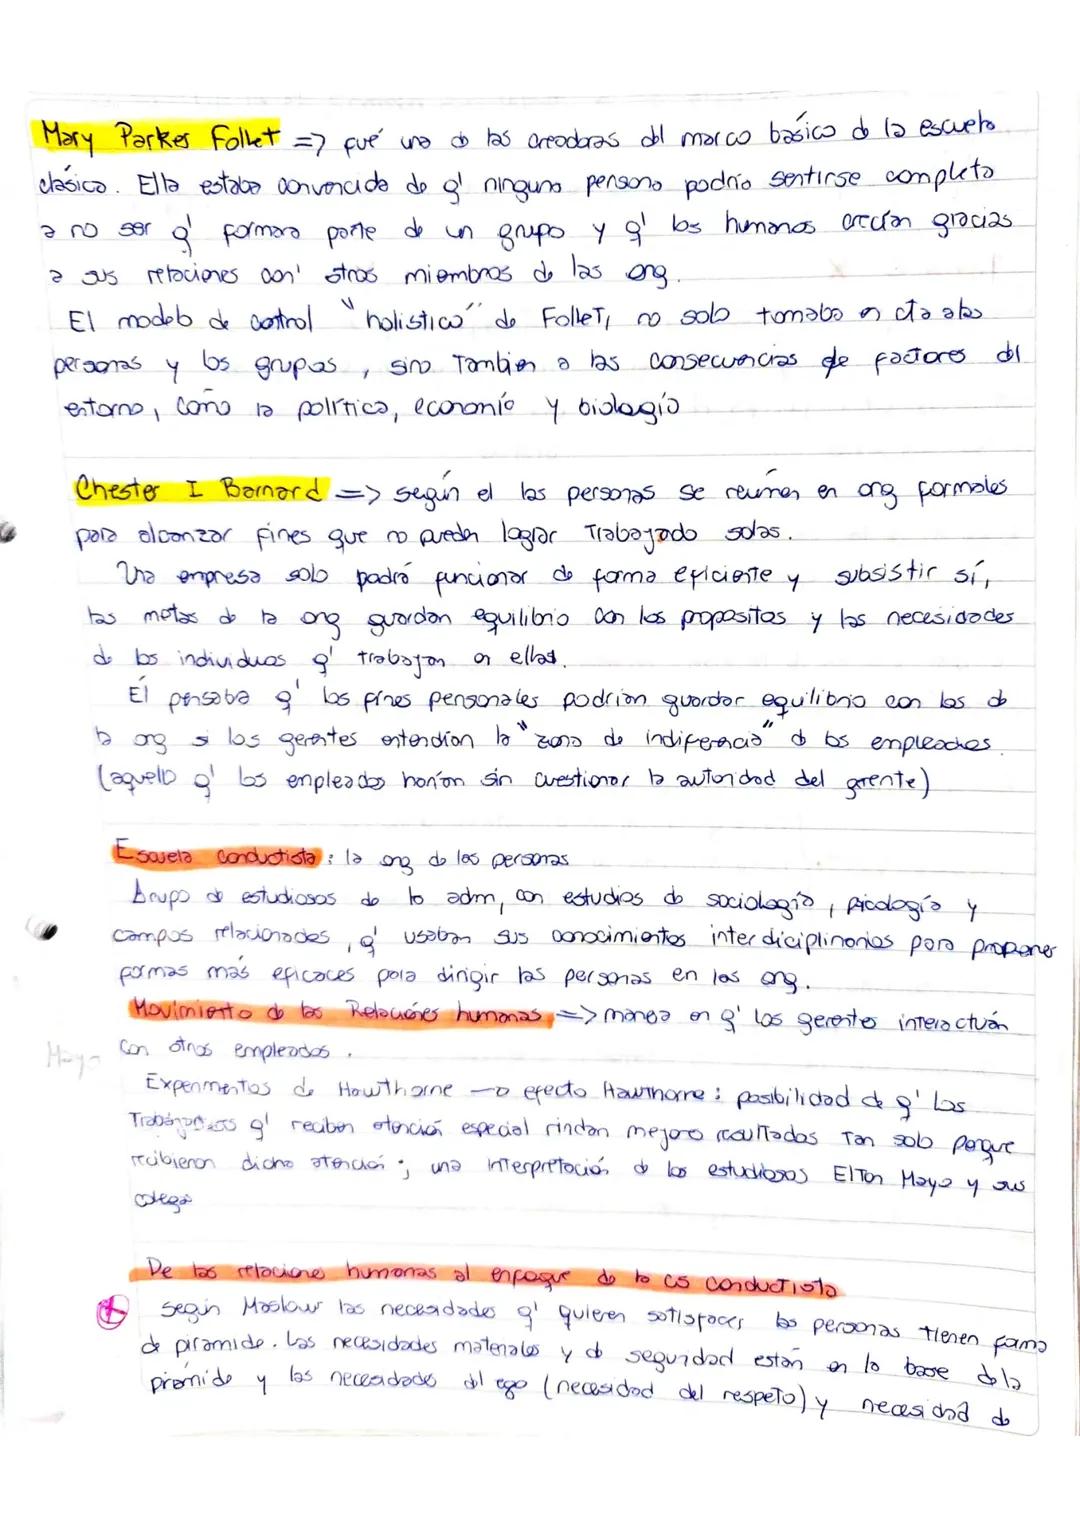 Mary Parker Follet => fué una d las creadoras dl marco básico d la escuela
clásica. Ella estaba convencida de q' ninguna persona podría sentirse completa
a no ser q' formara parte de un grupo y q' los humanos crecían gracias
a sus relaciones con otros miembros de las org.
El modelo de control "holistico" de Follet, no solo tomaba en cta a las
personas y los grupos, sino Tambien a las consecuencias de factores dl
entorno, como la política, economía y biología
Chester I Barnard => según el las personas se reúnen en org formales
para alcanzar fines que no pueden lograr Trabajando solas.
Una empresa solo podrá funcionar de forma eficiente y subsistir sí,
las metas de la org guardan equilibrio con los propositos y las necesidades
de los individuos q' trabajan en ellas.
Él pensaba q' los fines personales podrían guardar equilibrio con los de
la org si los gerentes entendían la "zona de indiferencia" d los empleados.
(aquello q' los empleados harían sin cuestionar la autoridad del gerente)
Escuela conductista: la org de las personas
Grupo de estudiosos de la adm, con estudios de sociología, psicología y
campos relacionados, q' usaban sus conocimientos interdiciplinarios para proponer
formas más eficaces para dirigir las personas en las org.
Movimiento de las Relaciones humanas => manera en q' los gerentes interactúan
Mayo con otros empleados.
Experimentos de Hawthorne → efecto Hawthorne: posibilidad de q' los
Trabajadores q' reciben atención especial rindan mejores resultados Tan solo porque
recibieron dicha atención; una interpretación de los estudiosos Elton Mayo y sus
colegas
De las relaciones humanas al enfoque de la cs conductista
Según Maslow las necesidades q' quieren satisfacer las personas tienen forma
de piramide. Las necesidades materiales y de seguridad están en la base de la
piramide y las necesidades dl ego (necesidad del respeto) y necesidad de